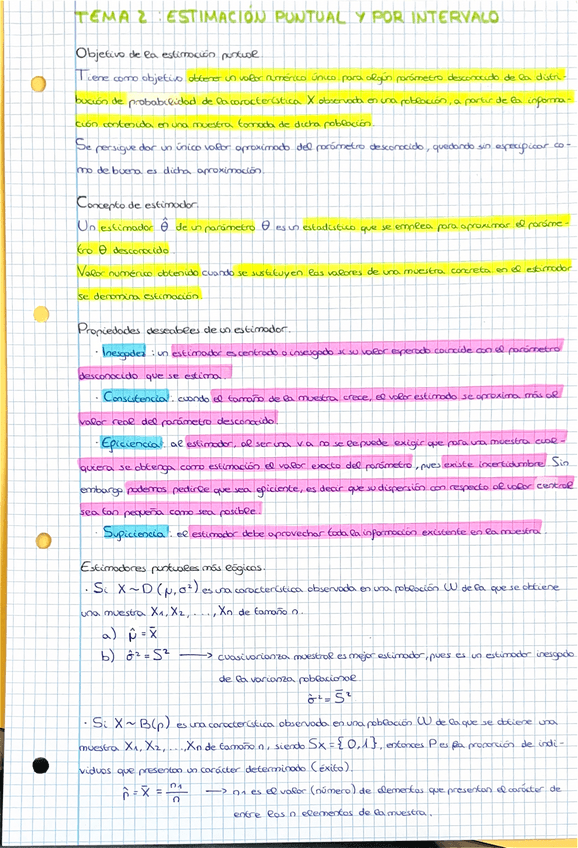 TEMA 2 : ESTIMACIÓN PUNTUAL Y POR INTERVALO
Objetivo de la estimación puntual
Tiene como objetivo obtener un valor numérico único para algún parámetro desconocido de la distri-
bución de probabilidad de la característica X observada en una población, a partir de la informa-
ción contenida en una muestra tomada de dicha población.
Se persigue dar un único valor aproximado del parámetro desconocido, quedando sin especificar co-
mo de buena es dicha aproximación.
Concepto de estimador.
Un estimador θ̂ de un parámetro θ es un estadístico que se emplea para aproximar el paráme-
tro θ desconocido.
Valor numérico obtenido cuando se sustituyen los valores de una muestra concreta en el estimador
se denomina estimación.
Propiedades deseables de un estimador.
· Insesgadez : un estimador es centrado o insesgado si su valor esperado coincide con el parámetro
desconocido que se estima.
· Consistencia : cuando el tamaño de la muestra crece, el valor estimado se aproxima más al
valor real del parámetro desconocido.
· Eficiencia : al estimador, al ser una v.a no se le puede exigir que para una muestra cual-
quiera se obtenga como estimación el valor exacto del parámetro, pues existe incertidumbre. Sin
embargo podemos pedirle que sea eficiente, es decir que su dispersión con respecto al valor central
sea tan pequeña como sea posible.
· Suficiencia : el estimador debe aprovechar toda la información existente en la muestra.
Estimadores puntuales más lógicos.
· Si X~D(μ,σ²) es una característica observada en una población W de la que se obtiene
una muestra X₁, X₂, ..., Xn de tamaño n.
a) μ̂ = x̄
b) σ̂² = S² → cuasivarianza muestral es mejor estimador, pues es un estimador insesgado
de la varianza poblacional
σ̂² = S̄²
· Si X~B(p) es una característica observada en una población W de la que se obtiene una
muestra X₁, X₂, ..., Xn de tamaño n, siendo Sx = {0,1}, entonces P es la proporción de indi-
viduos que presentan un carácter determinado (éxito).
p̂ = x̄ = n₁/n → n₁ es el valor (número) de elementos que presentan el carácter de
entre los n elementos de la muestra.